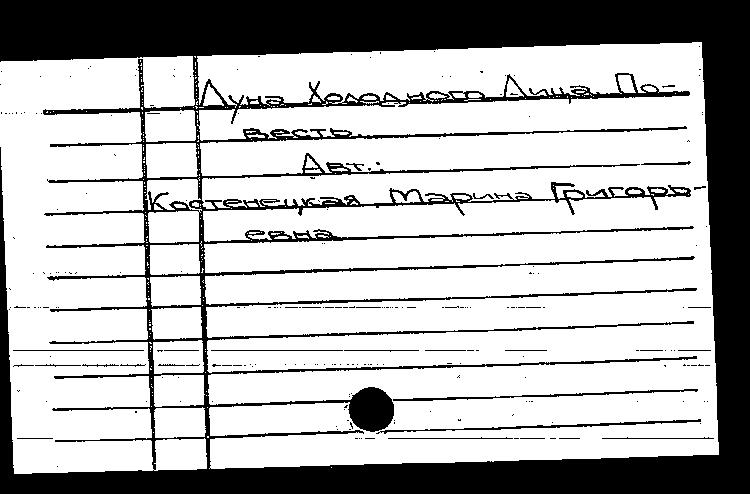 Луна Холодного Лица. По-
весть.
Авт.:
Костенецкая, Марина Григорь-
евна